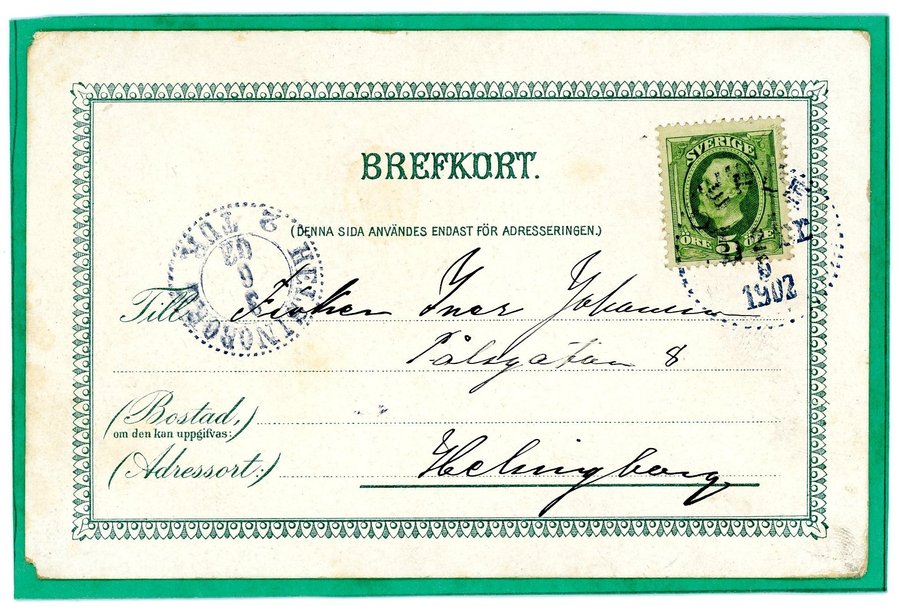 BREFKORT.
SVERIGE
(DENNA SIDA ANVÄNDES ENDAST FÖR ADRESSERINGEN.)
ÖRE 5 ÖRE
6
1902
HELSINGBORG 1 TUR 2
02
Till Fröken Iner Johansson
Pålsgatan 8
(Bostad,)
om den kan uppgifvas:
(Adressort:) Helsingborg